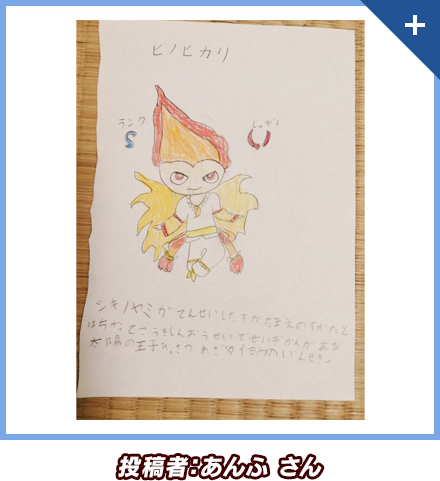 ヒノヒカリ
ランク
S
しゅぞく
シキノヤミが てんせいしたすがたまえのすがたと
はちがって こうきしんおうせいで せいぎかんがある
太陽の王子
投稿者:あんふ さん